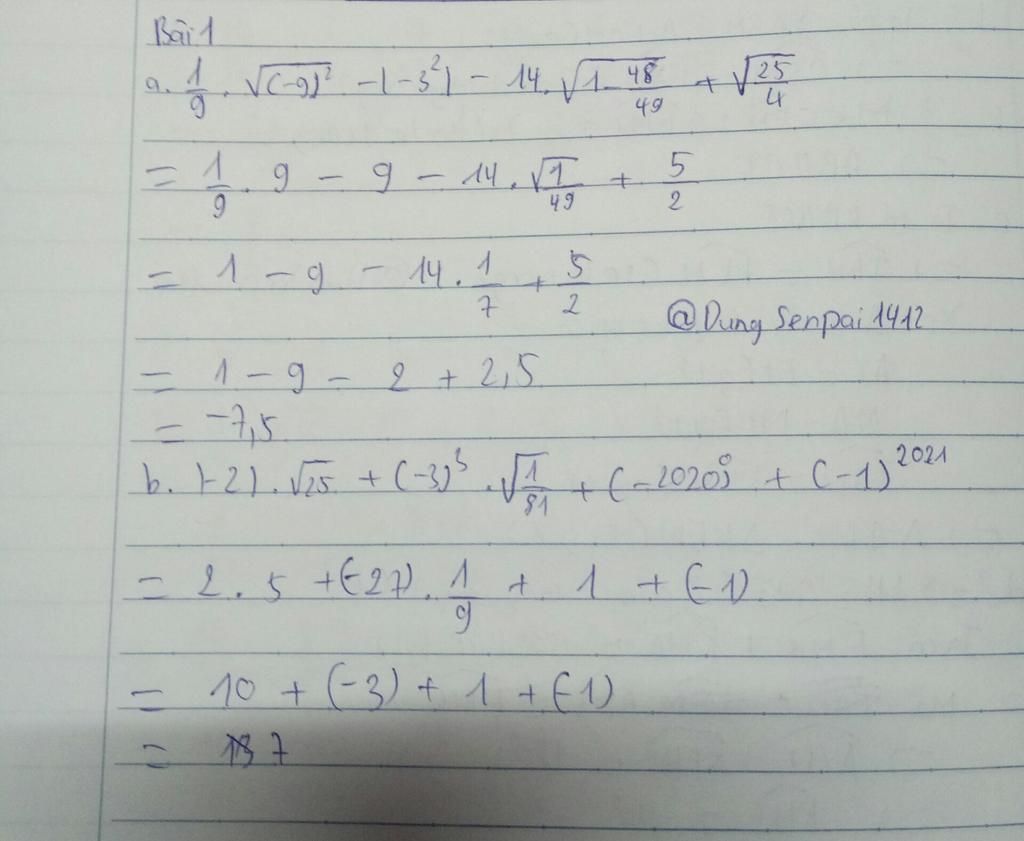 Bài 1
a. 1/9 . √(-9)² - |-3²| - 14. √1-48/49 + √25/4
= 1/9 . 9 - 9 - 14 . √1/49 + 5/2
= 1 - 9 - 14 . 1/7 + 5/2
@Dung Senpai 1412
= 1 - 9 - 2 + 2,5
= -7,5
b. |-2| . √25 + (-3)³ . √1/81 + (-2020)⁰ + (-1)²⁰²¹
= 2 . 5 + (-27) . 1/9 + 1 + (-1)
= 10 + (-3) + 1 + (-1)
= 7